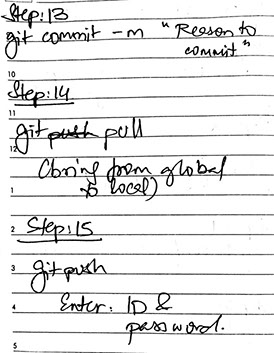 Step:13
git commit -m "Reason to
commit"
10
Step:14
11
git push pull
12
(bring from global
1 to local)
2 Step:15
3 git push
4 Enter: ID &
password.
5